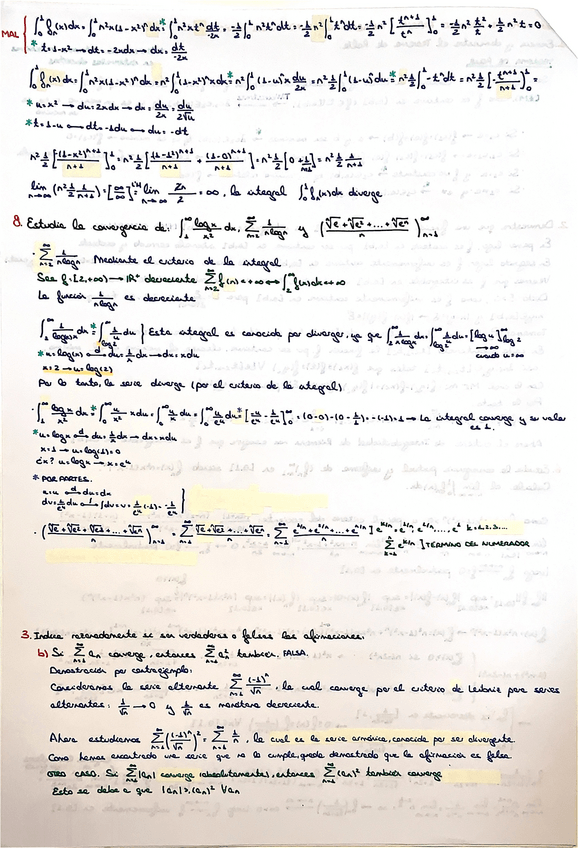 MAL
∫₀¹ fₙ(x)dx = ∫₀¹ n²x(1-x²)ⁿdx =* ∫₀¹ n²x tⁿ dt/-2x = -1/2 ∫₀¹ n² tⁿ dt = -1/2 n² ∫₀¹ tⁿ dt = -1/2 n²
* t=1-x² → dt=-2xdx → dx = dt/-2x
∫₀¹ fₙ(x)dx = ∫₀¹ n²x(1-x²)ⁿdx = n² ∫₀¹ (1-x²)ⁿ x dx =* n² ∫₀¹ (1-u)ⁿ x du/2x = n² 1/2 ∫₀¹ (1-u)ⁿ du =* n² 1/2 ∫₀¹ -tⁿ dt = n² 1/2 [-tⁿ⁺¹/n+1]₀¹ =
* u=x² → du=2xdx → dx = du/2x = du/2√u
* t=1-u → dt=-1du → du=-dt
n² 1/2 [-(1-x²)ⁿ⁺¹/n+1]₀¹ = n² 1/2 [-(1-1²)ⁿ⁺¹/n+1 + (1-0)ⁿ⁺¹/n+1] = n² 1/2 [0 + 1/n+1] = n² 1/2 1/n+1
lim n→∞ (n² 1/2 1/n+1) = [∞/∞] = lim n→∞ 2n/2 = ∞, la integral ∫₀¹ fₙ(x)dx diverge
8. Estudia la convergencia de: ∫₁^∞ logx/x² dx, Σ n=2 ∞ 1/nlogn y (√e + √e² + ... + √eⁿ / n) ∞ n=1
· Σ n=2 ∞ 1/nlogn. Mediante el criterio de la integral
Sea f:[2,+∞) → ℝ⁺ decreciente Σ n=2 ∞ f(n)<+∞ ↔ ∫₂^∞ f(x)dx<+∞
La función 1/nlogn es decreciente
∫₂^∞ 1/log(x)x dx =* ∫ log2 ∞ 1/u du } Esta integral es conocida por diverger, ya que ∫₂^∞ 1/xlogx dx = ∫ log2 ∞ 1/u du = [log u] ∞ log2 → ∞ cuando u→∞
* u=log(x) → du = 1/x dx → dx = xdu
x=2 → u=log(2)
Por lo tanto, la serie diverge (por el criterio de la integral)
· ∫₁^∞ logx/x² dx =* ∫₀^∞ u/x² xdu = ∫₀^∞ u/x du = ∫₀^∞ u/eᵘ du =* [-u/eᵘ - 1/eᵘ]₀^∞ = (0-0)-(0-1/1) = -(-1) = 1 → La integral converge y su valor
es 1.
* u=logx → du = 1/x dx → dx = xdu
x=1 → u=log(1)=0
¿x? u=logx → x=eᵘ
* POR PARTES.
u=u → du=du
dv = 1/eᵘ du → ∫dv = v = 1/eᵘ (-1) = -1/eᵘ
TÉRMINO DEL NUMERADOR
3. Indica razonadamente si son verdaderas o falsas las afirmaciones.
b) Si Σ n=1 ∞ aₙ converge, entonces Σ n=1 ∞ aₙ² también. FALSA.
Demostración por contraejemplo:
Consideramos la serie alternante Σ n=1 ∞ (-1)ⁿ/√n, la cual converge por el criterio de Leibniz para series
alternantes: 1/√n → 0 y 1/√n es monótona decreciente.
Ahora estudiamos Σ n=1 ∞ ((-1)ⁿ/√n)² = Σ n=1 ∞ 1/n, la cual es la serie armónica, conocida por ser divergente.
Como hemos encontrado una serie que no lo cumple, queda demostrado que la afirmación es falsa
OTRO CASO. Si Σ n=1 ∞ |aₙ| converge (absolutamente), entonces Σ n=1 ∞ (aₙ)² también converge
Esto se debe a que |aₙ| ≥ (aₙ)² ∀aₙ